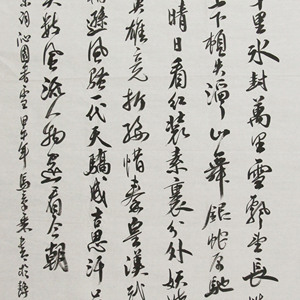 千里冰封萬里雪飄望長
上下頓失滔滔山舞銀蛇原馳
晴日看紅裝素裹分外妖嬈
英雄竞折腰惜秦皇漢武
遜風騷一代天驕成吉思汗只
矣數風流人物還看今朝
沁園春雪 甲午年